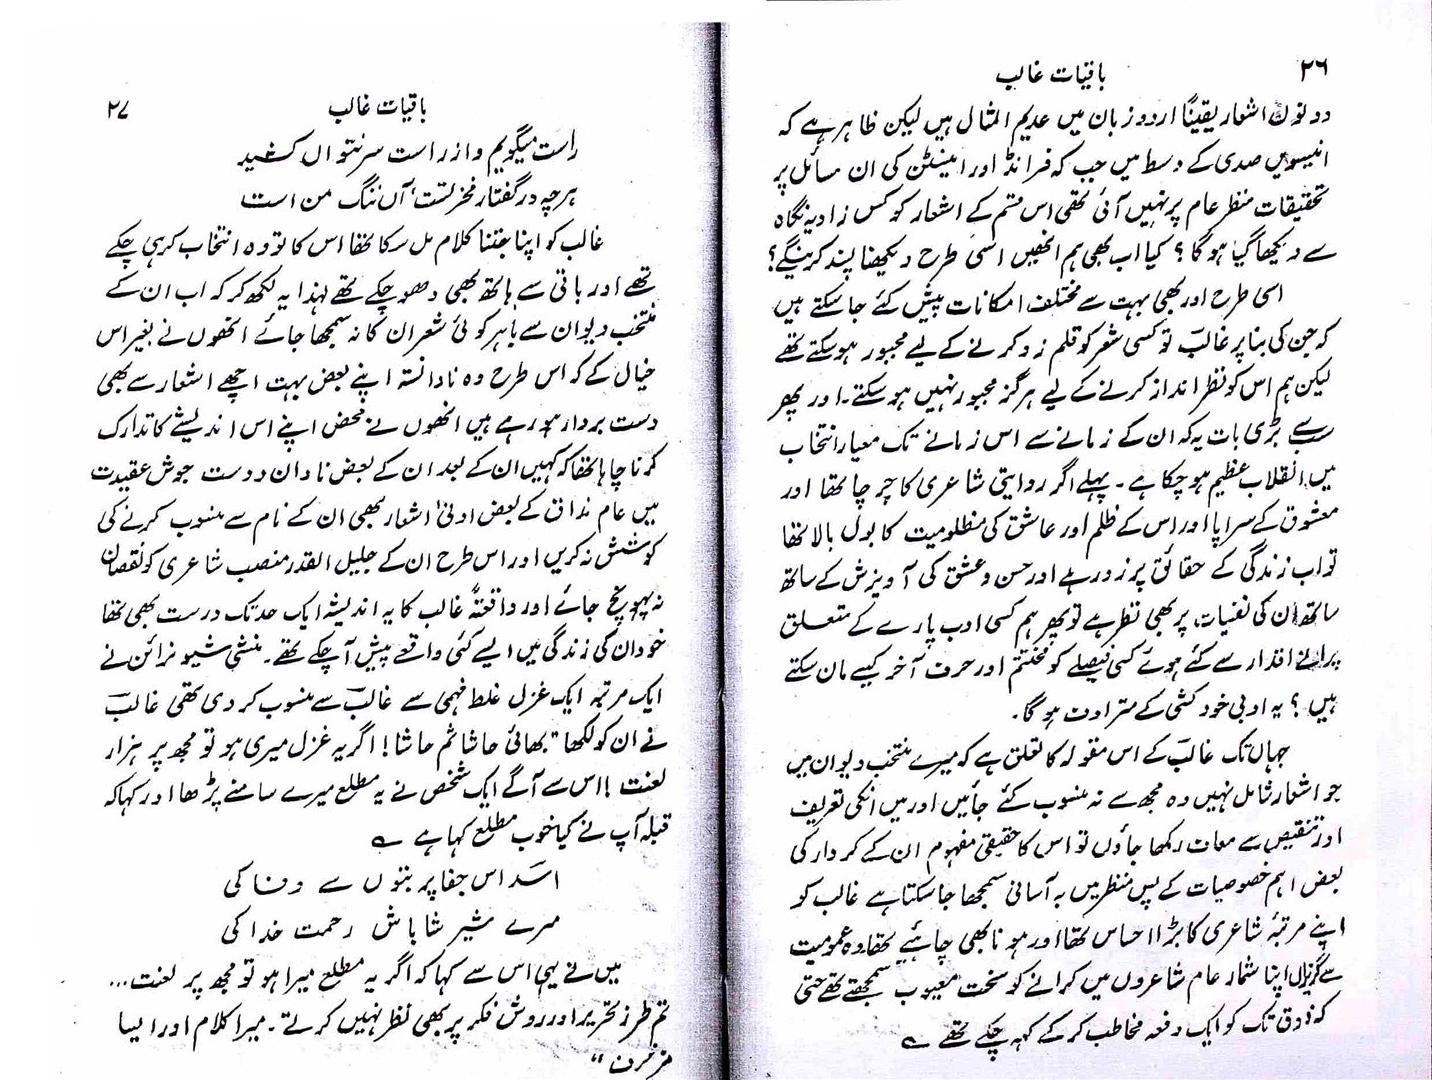 ۲۶
باقیات غالب
دونوں اشعار یقیناً اردو زبان میں عدیم المثال ہیں لیکن ظاہر ہے کہ
انیسویں صدی کے وسط میں جب کہ فرائڈ اور اینسٹن کی ان مسائل پر
تحقیقات منظر عام پر نہیں آئی تھی اس قسم کے اشعار کو کس زاویہ نگاہ
سے دیکھا گیا ہوگا؟ کیا اب بھی ہم انھیں اسی طرح دیکھنا پسند کرینگے؟
اسی طرح اور بھی بہت سے مختلف امکانات پیش کئے جا سکتے ہیں
کہ جن کی بنا پر غالبؔ تو کسی شعر کو قلم زد کرنے کے لیے مجبور ہو سکتے تھے
لیکن ہم اس کو نظر انداز کرنے کے لیے ہرگز مجبور نہیں ہو سکتے۔ اور پھر
سب سے بڑی بات یہ کہ ان کے زمانے سے اس زمانے تک معیار انتخاب
میں انقلاب عظیم ہو چکا ہے۔ پہلے اگر روایتی شاعری کا چرچا تھا اور
معشوق کے سراپا اور اس کے ظلم اور عاشق کی مظلومیت کا بول بالا تھا
تو اب زندگی کے حقائق پر زور ہے اور حسن و عشق کی آویزش کے ساتھ
ساتھ ان کی نفسیات پر بھی نظر ہے تو پھر ہم کسی ادب پارے کے متعلق
پرانے اقدار سے کئے ہوئے کسی فیصلے کو مختتم اور حرف آخر کیسے مان سکتے
ہیں؟ یہ ادبی خودکشی کے مترادف ہوگا۔
جہاں تک غالبؔ کے اس مقولہ کا تعلق ہے کہ میرے منتخب دیوان میں
جو اشعار شامل نہیں وہ مجھ سے نہ منسوب کئے جائیں اور میں انکی تعریف
اور تنقیص سے معاف رکھا جاؤں تو اس کا حقیقی مفہوم ان کے کردار کی
بعض اہم خصوصیات کے پس منظر میں بہ آسانی سمجھا جا سکتا ہے غالب کو
اپنے مرتبۂ شاعری کا بڑا احساس تھا اور ہونا بھی چاہئے تھا وہ عمومیت
سے گریزاں اپنا شمار عام شاعروں میں کرانے کو سخت معیوب سمجھتے تھے حتی
کہ ذوق تک کو ایک دفعہ مخاطب کر کے کہہ چکے تھے ؎
۲۷
باقیات غالب
راست میگویم و از راست سر نتواں کشید
ہر چہ در گفتار فخر تست، آں ننگ من است
غالب کو اپنا جتنا کلام مل سکا تھا اس کا تو وہ انتخاب کر ہی چکے
تھے اور باقی سے ہاتھ بھی دھو چکے تھے لہذا یہ لکھ کر کہ اب ان کے
منتخب دیوان سے باہر کوئی شعر ان کا نہ سمجھا جائے انھوں نے بغیر اس
خیال کے کہ اس طرح وہ نادانستہ اپنے بعض بہت اچھے اشعار سے بھی
دست بردار ہو رہے ہیں انھوں نے محض اپنے اس اندیشے کا تدارک
کرنا چاہا تھا کہ کہیں ان کے بعد ان کے بعض نادان دوست جوش عقیدت
میں عام مذاق کے بعض ادنیٰ اشعار بھی ان کے نام سے منسوب کرنے کی
کوشش نہ کریں اور اس طرح ان کے جلیل القدر منصب شاعری کو نقصان
نہ پہونچ جائے اور واقعتہً غالب کا یہ اندیشہ ایک حد تک درست بھی تھا
خود ان کی زندگی میں ایسے کئی واقعے پیش آ چکے تھے۔ منشی شیو نرائن نے
ایک مرتبہ ایک غزل غلط فہمی سے غالبؔ سے منسوب کر دی تھی غالبؔ
نے ان کو لکھا "بھائی حاشا ثم حاشا! اگر یہ غزل میری ہو تو مجھ پر ہزار
لعنت! اس سے آگے ایک شخص نے یہ مطلع میرے سامنے پڑھا اور کہا کہ
قبلہ آپ نے کیا خوب مطلع کہا ہے ؎
اسدؔ اس جفا پر بتوں سے وفا کی
مرے شیر شاباش رحمت خدا کی
میں نے یہی اس سے کہا کہ اگر یہ مطلع میرا ہو تو مجھ پر لعنت...
تم طرز تحریر اور روش فکر پر بھی نظر نہیں کرتے۔ میرا کلام اور ایسا
مزخرف"